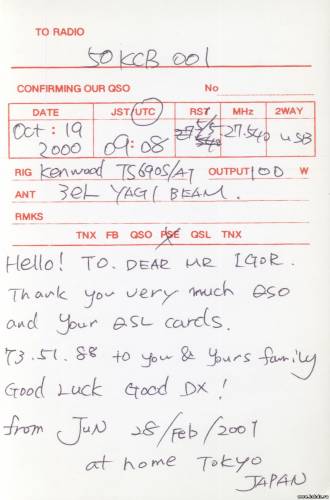 TO RADIO
50KCB 001
CONFIRMING OUR QSO No
DATE JST/UTC RST MHz 2WAY
Oct. 19 2000 09:08 5/5 27.540 USB
RIG Kenwood TS690S/AT OUTPUT 100 W
ANT 3eL YAGI BEAM.
RMKS
TNX FB QSO PSE QSL TNX
Hello! TO. DEAR MR IGOR.
Thank you very much QSO
and your QSL cards.
73.51.88 to you & yours family
Good Luck Good DX!
from JUN 28/Feb/2001
at home TOKYO
JAPAN